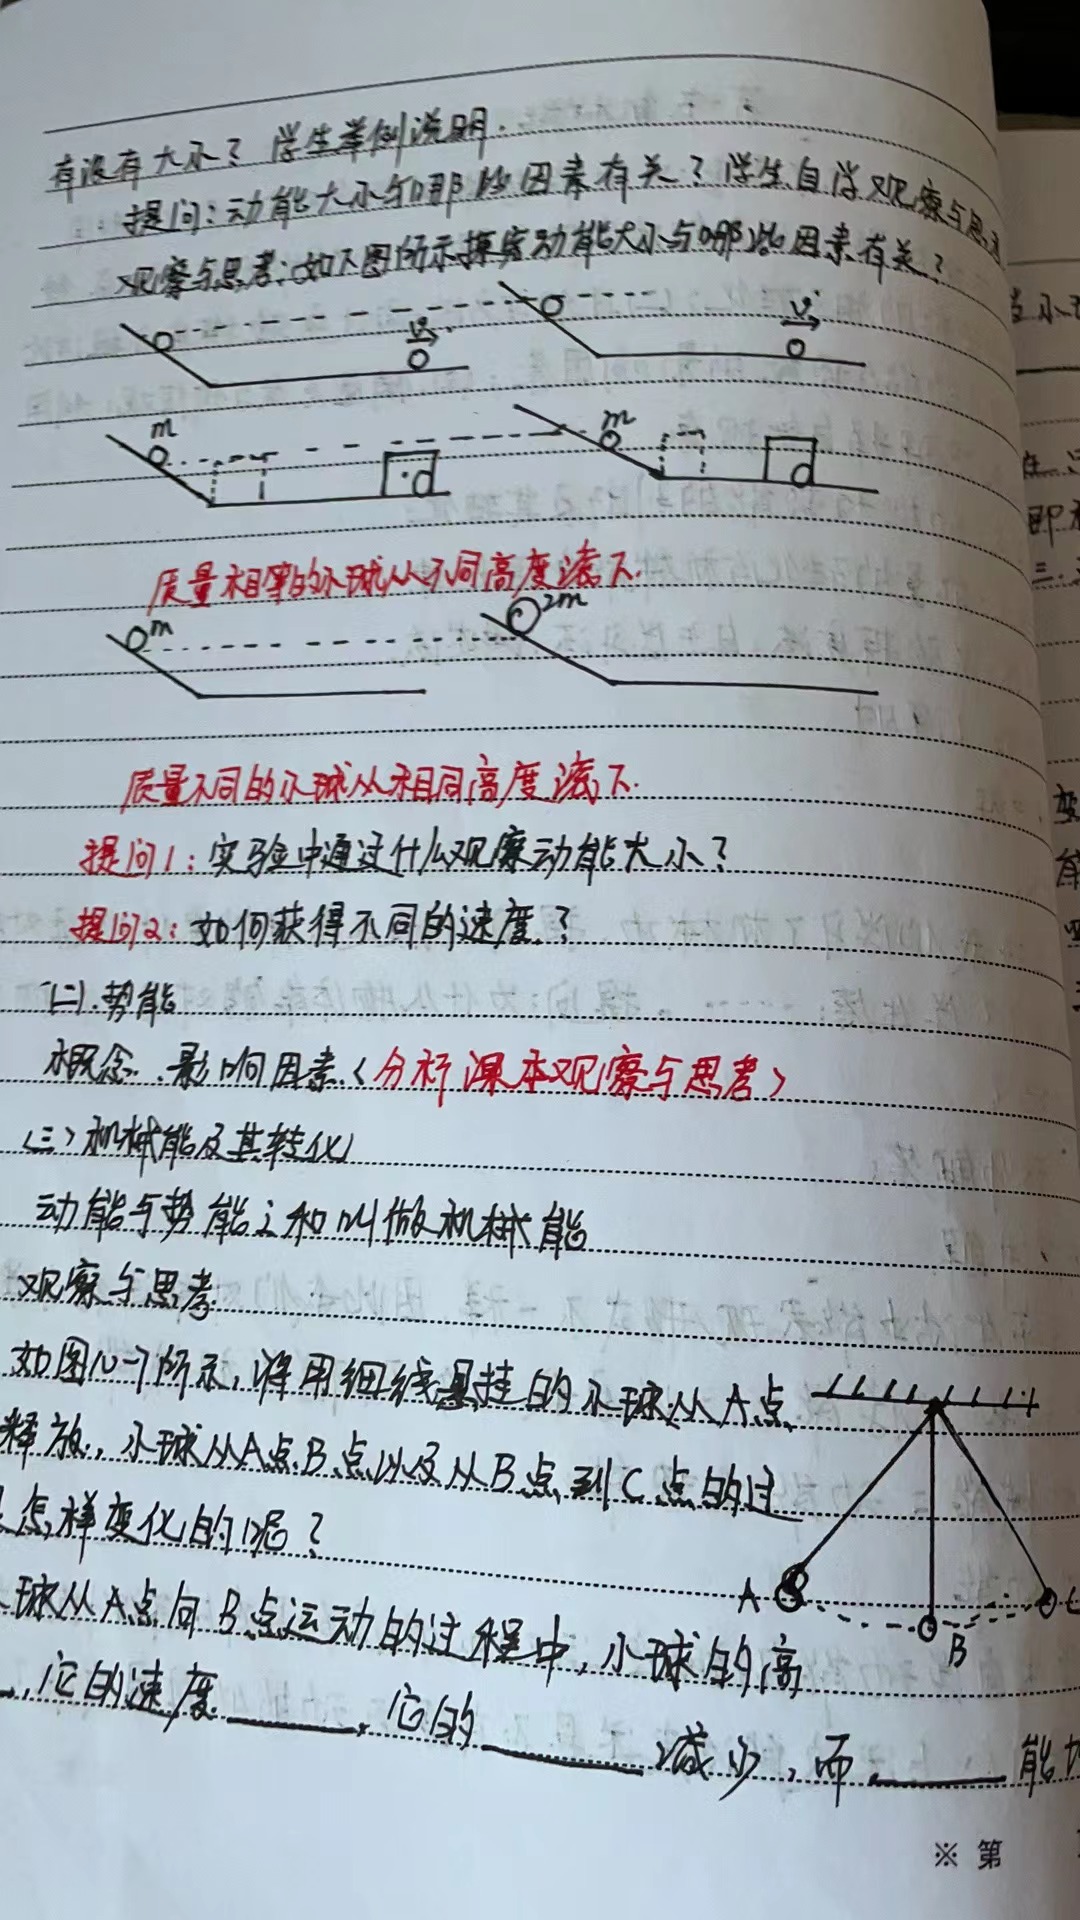 有没有大小？学生举例说明.
提问：动能大小与哪些因素有关？学生自学观察与思考
观察与思考：如下图所示探究动能大小与哪些因素有关？
v
v
m
m
质量相等的小球从不同高度滚下.
m
2m
质量不同的小球从相同高度滚下.
提问1：实验中通过什么观察动能大小？
提问2：如何获得不同的速度？
(二).势能
概念、影响因素（分析课本观察与思考）
(三)机械能及其转化
动能与势能之和叫做机械能
观察与思考
如图10-7所示，将用细线悬挂的小球从A点
释放，小球从A点B点以及从B点到C点的过
怎样变化的呢？
球从A点向B点运动的过程中，小球的高
，它的速度，它的减少，而能
A
B
C
※ 第
当小
即
三.
变